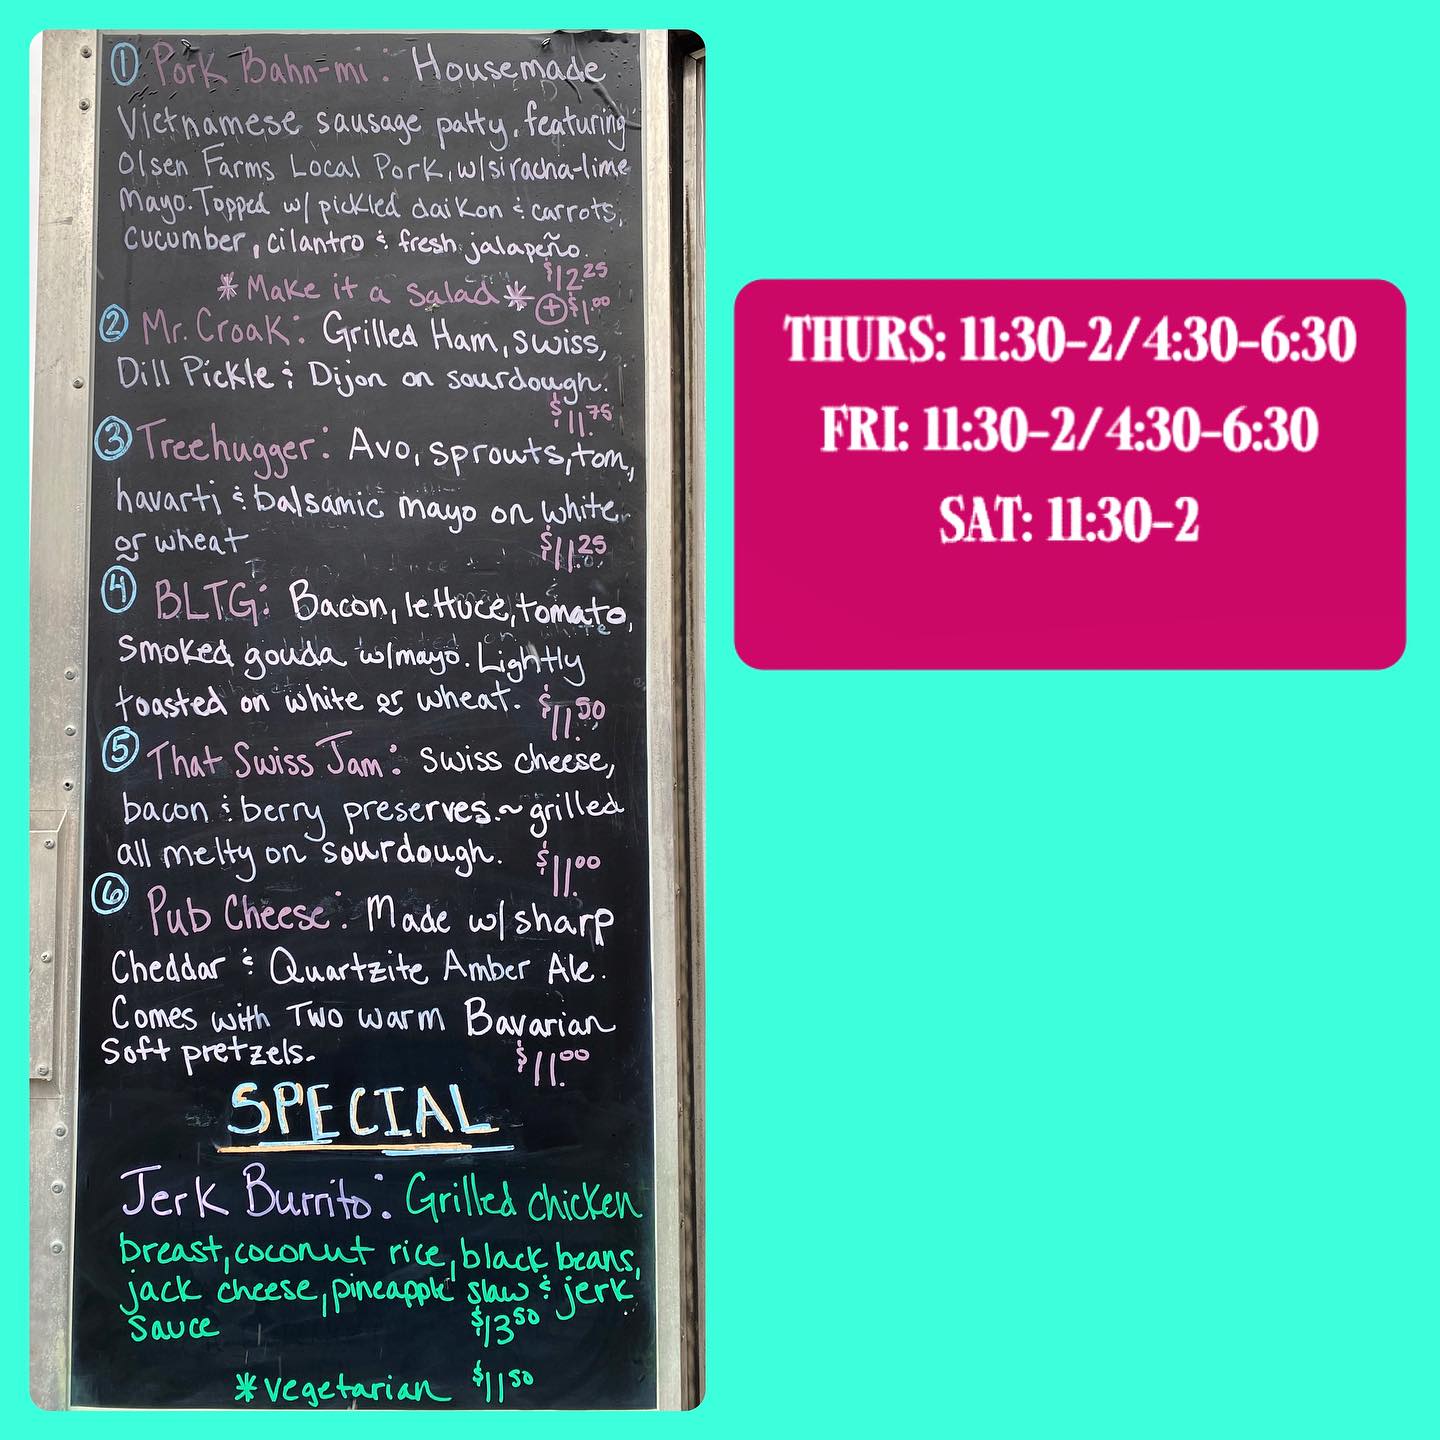 ① Pork Bahn-mi: Housemade
Vietnamese sausage patty, featuring
Olsen Farms Local Pork, w/siracha-lime
Mayo. Topped w/ pickled daikon & carrots,
cucumber, cilantro & fresh jalapeño.
$12.25
*Make it a salad* + $1.00
② Mr. Croak: Grilled Ham, swiss,
Dill Pickle & Dijon on sourdough.
$11.75
③ Treehugger: Avo, sprouts, tom,
havarti & balsamic mayo on white
or wheat $11.25
④ BLTG: Bacon, lettuce, tomato,
smoked gouda w/mayo. Lightly
toasted on white or wheat. $11.50
⑤ That Swiss Jam: swiss cheese,
bacon & berry preserves.~grilled
all melty on sourdough. $11.00
⑥ Pub Cheese: Made w/ sharp
Cheddar & Quartzite Amber Ale.
Comes with Two warm Bavarian
Soft pretzels. $11.00
SPECIAL
Jerk Burrito: Grilled chicken
breast, coconut rice, black beans,
jack cheese, pineapple slaw & jerk
sauce $13.50
*vegetarian $11.50
THURS: 11:30-2/4:30-6:30
FRI: 11:30-2/4:30-6:30
SAT: 11:30-2